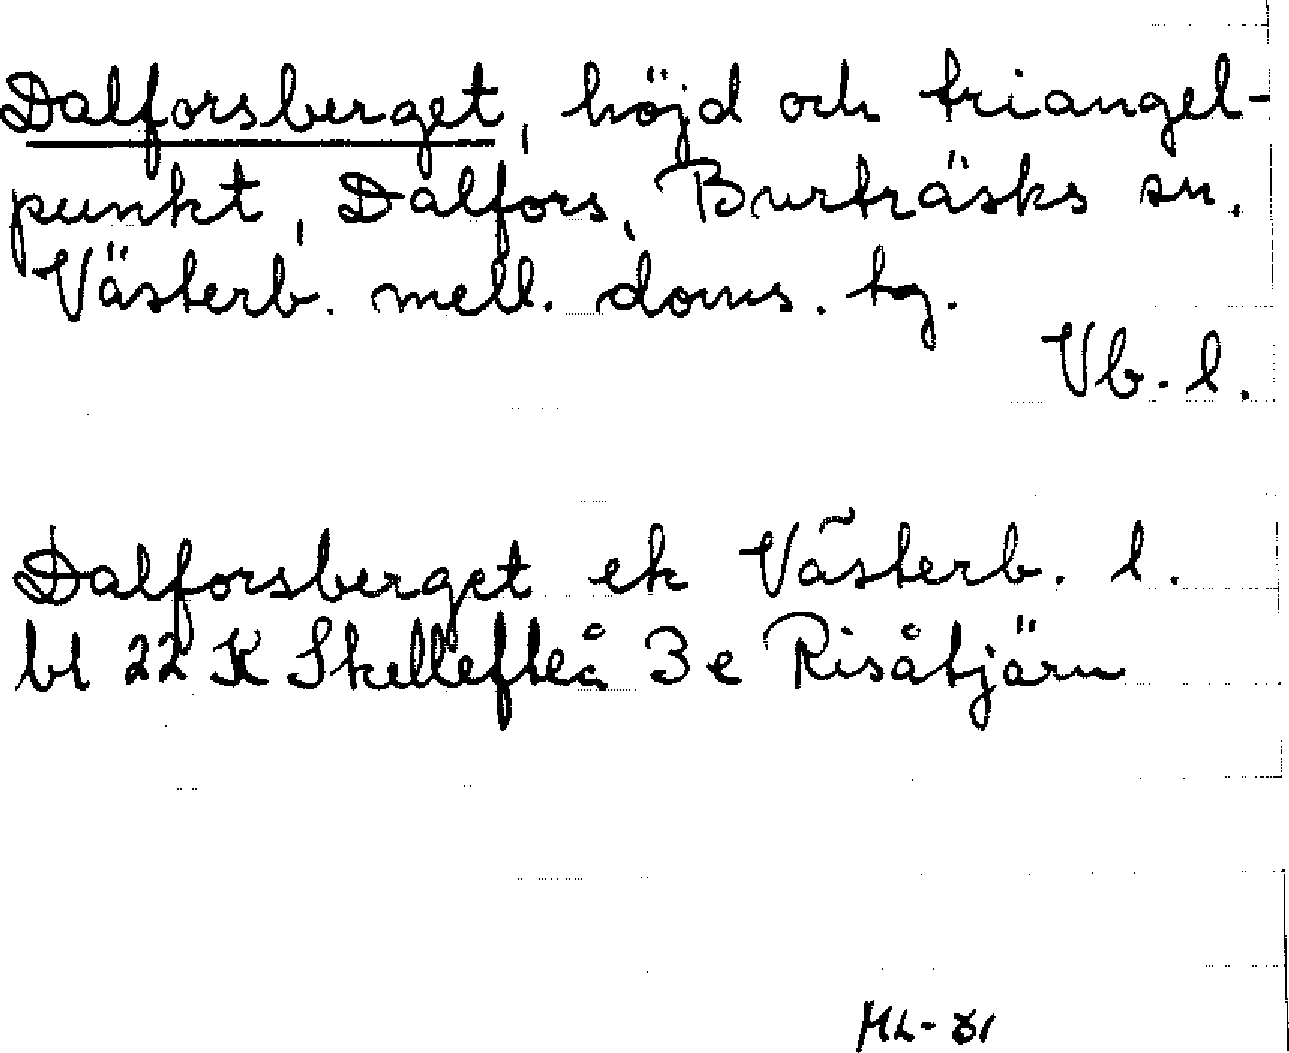 Dalforsberget, höjd och triangel-
punkt, Dalfors, Burträsks sn.
Västerb. mell. doms. tg.
Vb. l.
Dalforsberget ek Västerb. l.
bl 22 K Skellefteå 3 e Risåtjärn
ML-81